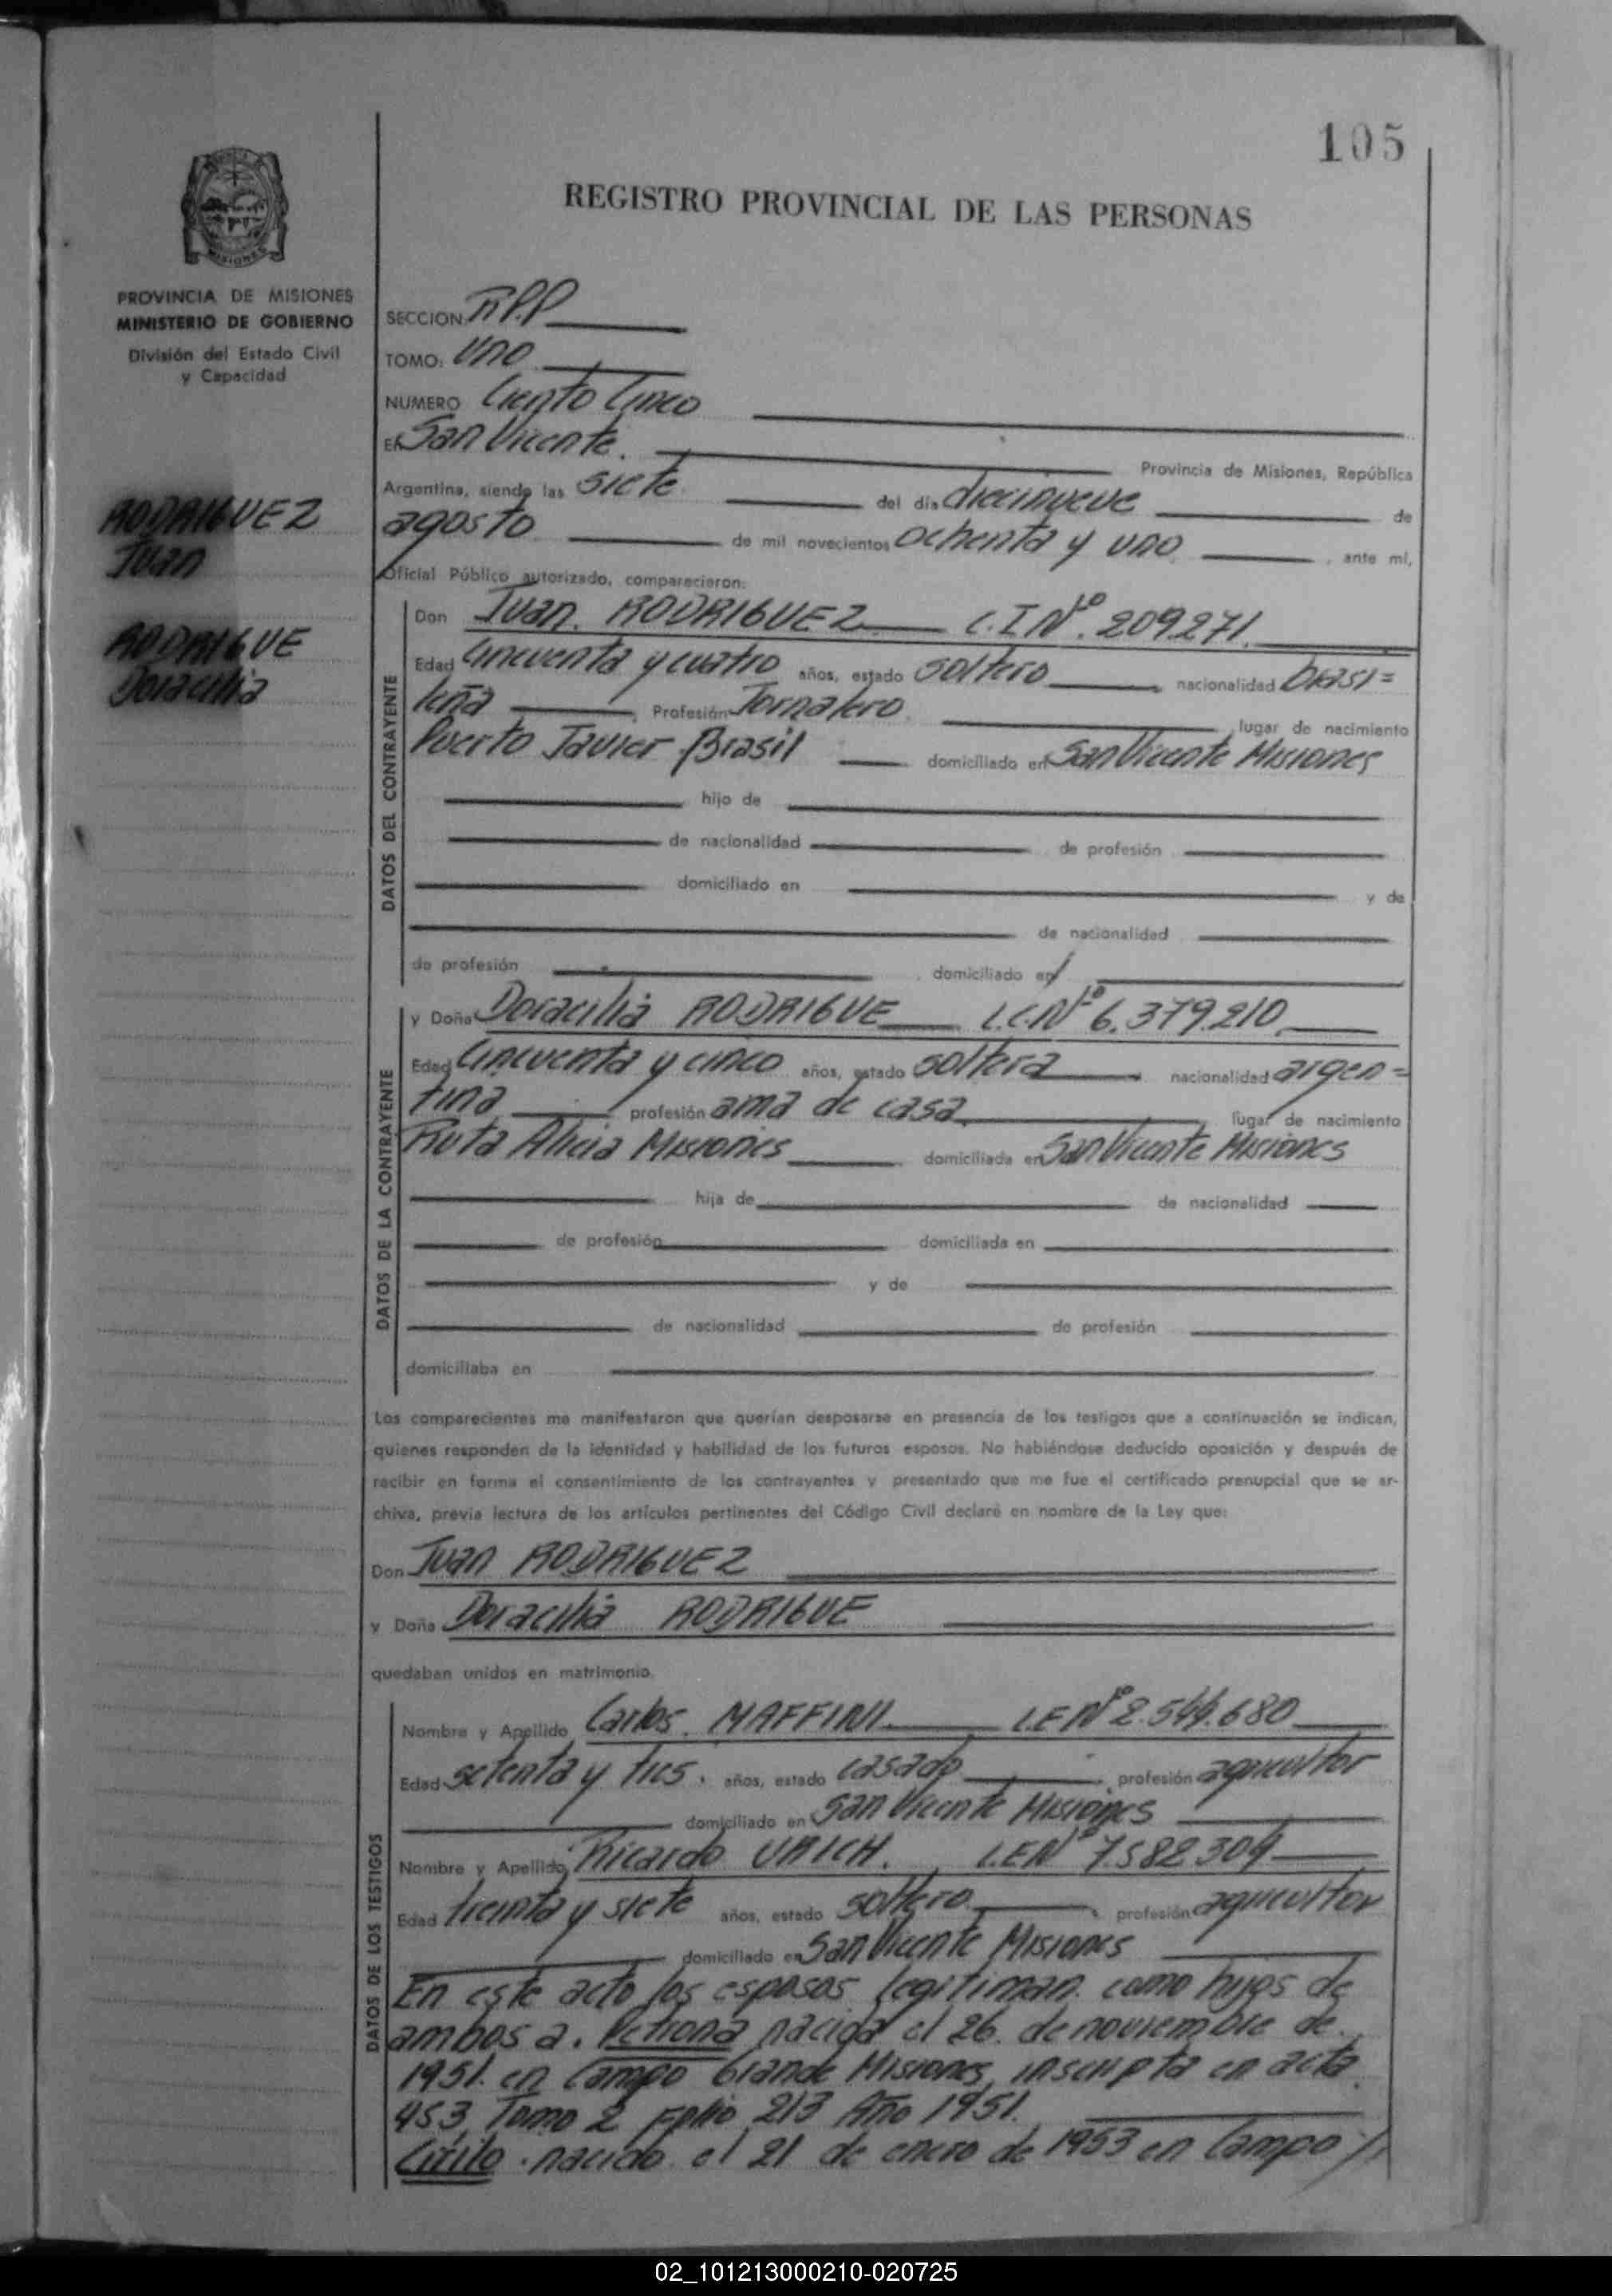 105
REGISTRO PROVINCIAL DE LAS PERSONAS
MISIONES
PROVINCIA DE MISIONES
MINISTERIO DE GOBIERNO
División del Estado Civil
y Capacidad
RODRIGUEZ
Juan
RODRIGUE
Doracilia
SECCION R.P.P
TOMO: uno
NUMERO Ciento Cinco
En San Vicente. Provincia de Misiones, República
Argentina, siendo las siete del día diecinueve de
agosto de mil novecientos ochenta y uno , ante mí,
Oficial Público autorizado, comparecieron:
DATOS DEL CONTRAYENTE
Don Juan. RODRIGUEZ C.I Nº. 209.271.
Edad Cincuenta y cuatro años, estado soltero nacionalidad brasi=
leña , Profesión Jornalero. , lugar de nacimiento
Puerto Javier Brasil domiciliado en San Vicente Misiones
hijo de
de nacionalidad de profesión
domiciliado en y de
de nacionalidad
de profesión , domiciliado en
DATOS DE LA CONTRAYENTE
y Doña Doracilia RODRIGUE L.C.Nº 6.379.210.
Edad Cincuenta y cinco años, estado soltera nacionalidad argen=
tina profesión ama de casa. lugar de nacimiento
Ruta Alicia Misiones domiciliada en San Vicente Misiones
hija de de nacionalidad
de profesión domiciliada en
y de
de nacionalidad de profesión
domiciliaba en
Los comparecientes me manifestaron que querían desposarse en presencia de los testigos que a continuación se indican,
quienes responden de la identidad y habilidad de los futuros esposos. No habiéndose deducido oposición y después de
recibir en forma el consentimiento de los contrayentes y presentado que me fue el certificado prenupcial que se ar-
chiva, previa lectura de los artículos pertinentes del Código Civil declaré en nombre de la Ley que:
Don Juan RODRIGUEZ
y Doña Doracilia RODRIGUE
quedaban unidos en matrimonio.
DATOS DE LOS TESTIGOS
Nombre y Apellido Carlos. MAFFINI. L.E Nº 2.544.680
Edad setenta y tres. años, estado casado , profesión agricultor
domiciliado en San Vicente Misiones
Nombre y Apellido Ricardo URICH. L.E Nº 7.582.309
Edad treinta y siete años, estado soltero , profesión agricultor
domiciliado en San Vicente Misiones
En este acto los esposos legitiman como hijos de
ambos a. Petrona nacida el 26. de noviembre de.
1951. en Campo Grande Misiones, inscripta en acta
453, Tomo 2 Folio 213 Año 1951.
Cirilo. nacido el 21 de enero de 1953 en Campo //
02_101213000210-020725